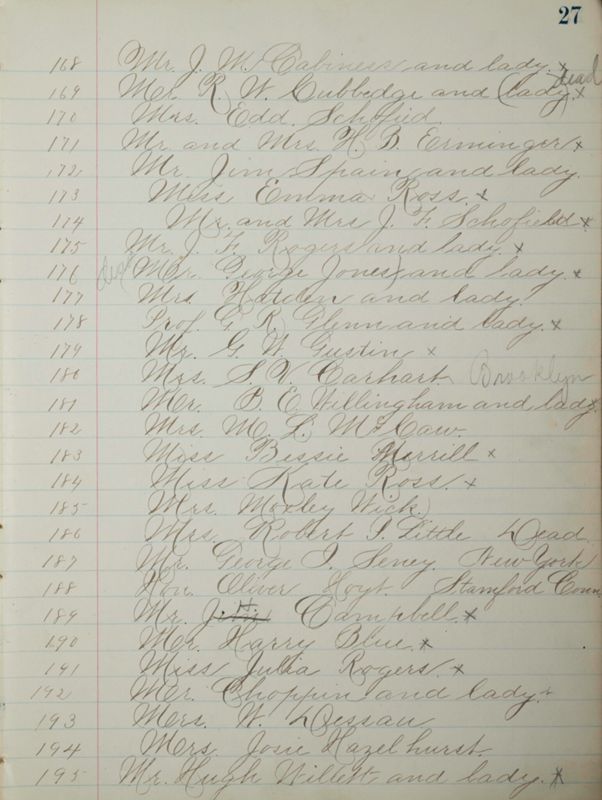 27
168 Mr. J. W. Cabiness and lady. x
169 Mr. R. W. Cubbedge and (lady) x dead
170 Mrs. Edd. Schofied
171 Mr. and Mrs. H. B. Erminger x
172 Mr. Jim Spain and lady.
173 Miss Emma Ross. x
174 Mr. and Mrs J. F. Schofield x
175 Mr. J. F. Rogers and lady. x
176 Mr. George Jones) and lady. x
177 Mrs Harden and lady.
178 Prof. G. R. Glenn and lady. x
179 Mr. G. W. Gustin x
180 Mrs. S. V. Carhart. Brooklyn
181 Mr. B. E. Willingham and lady. x
182 Mrs. M. L. McCaw.
183 Miss Bessie Merrill x
184 Miss Kate Ross. x
185 Mrs. Moxley Wick.
186 Mrs. Robert P. Little Dead.
187 Mr. George I. Seney. New York
188 Hon. Oliver Hoyt. Stamford Conn.
189 Mr. H. Campbell. x
190 Mr. Harry Blue. x
191 Miss Julia Rogers. x
192 Mr. Choppin and lady. x
193 Mrs. W. Dessau
194 Mrs. Josie Hazelhurst.
195 Mr. Hugh Willett and lady. x